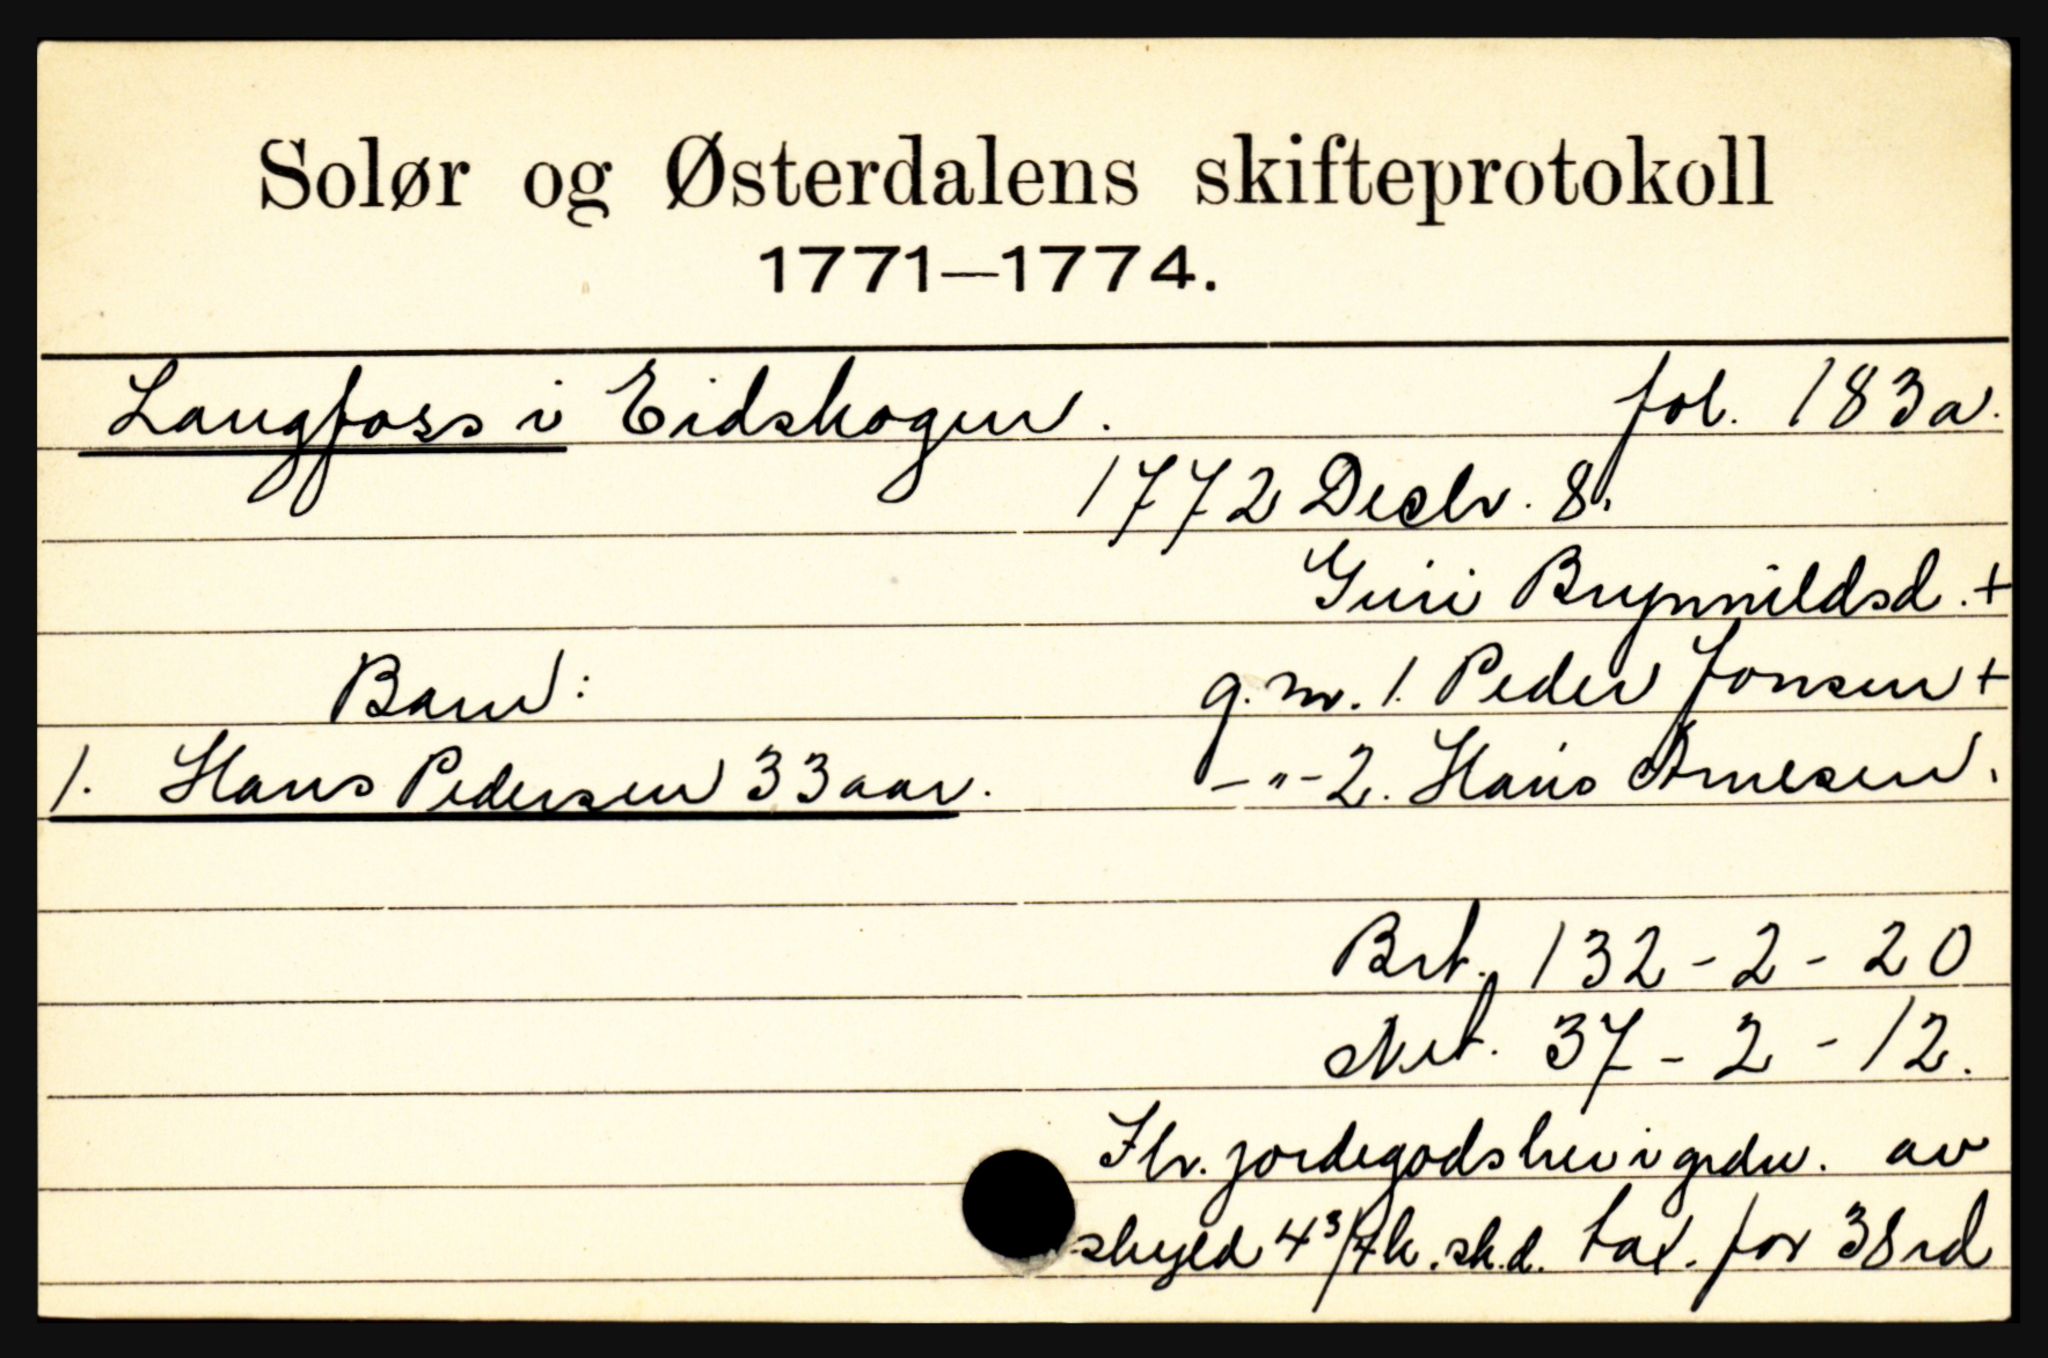 Solør og Østerdalens skifteprotokoll
1771—1774.
Langfoss i Eidskogen. fol. 183a.
1772 Decbr. 8.
Guri Brynnildsd. +
Barn: g. m. 1. Peder Jonsen +
1. Hans Pedersen 33 aar. - " - 2. Hans Arnesen.
Brt. 132 - 2 - 20
Net. 37 - 2 - 12.
Ibr. jordegods her i grdn. av
skyld 4 3/4 k. sk.d. tax. for 38 rd